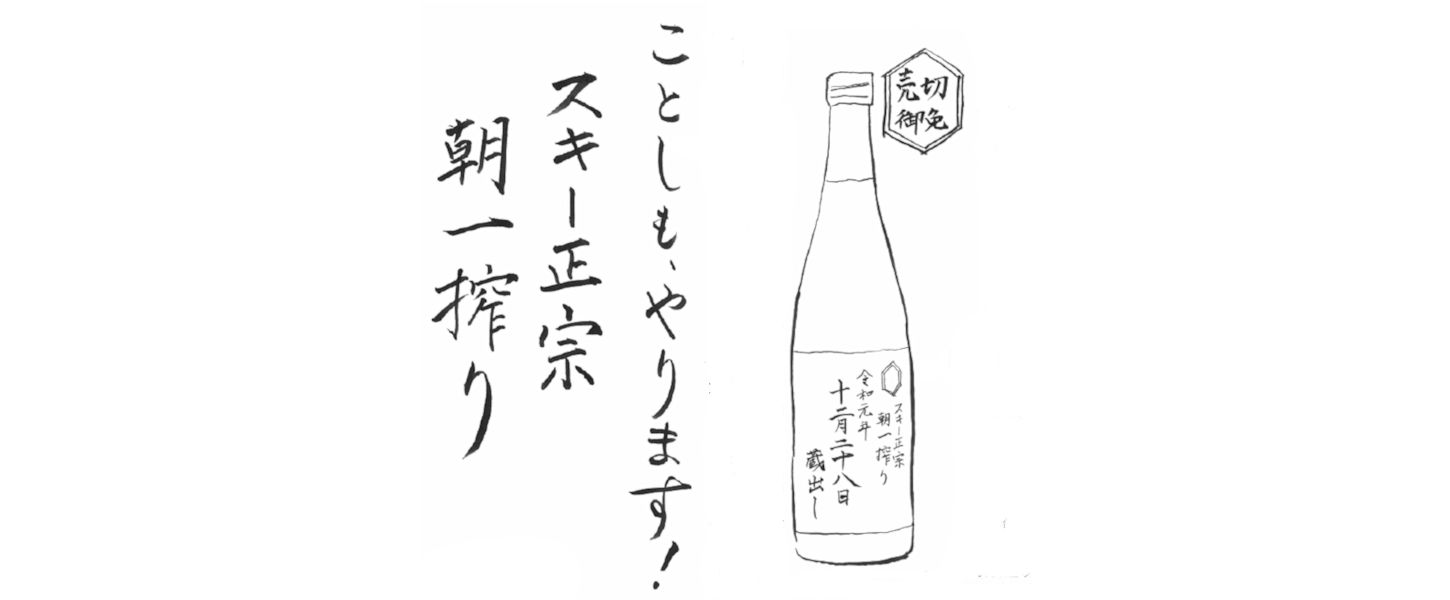 ことしも、やります!
スキー正宗
朝一搾り
売切
御免
スキー正宗
朝一搾り
令和元年
十二月二十八日
蔵出し